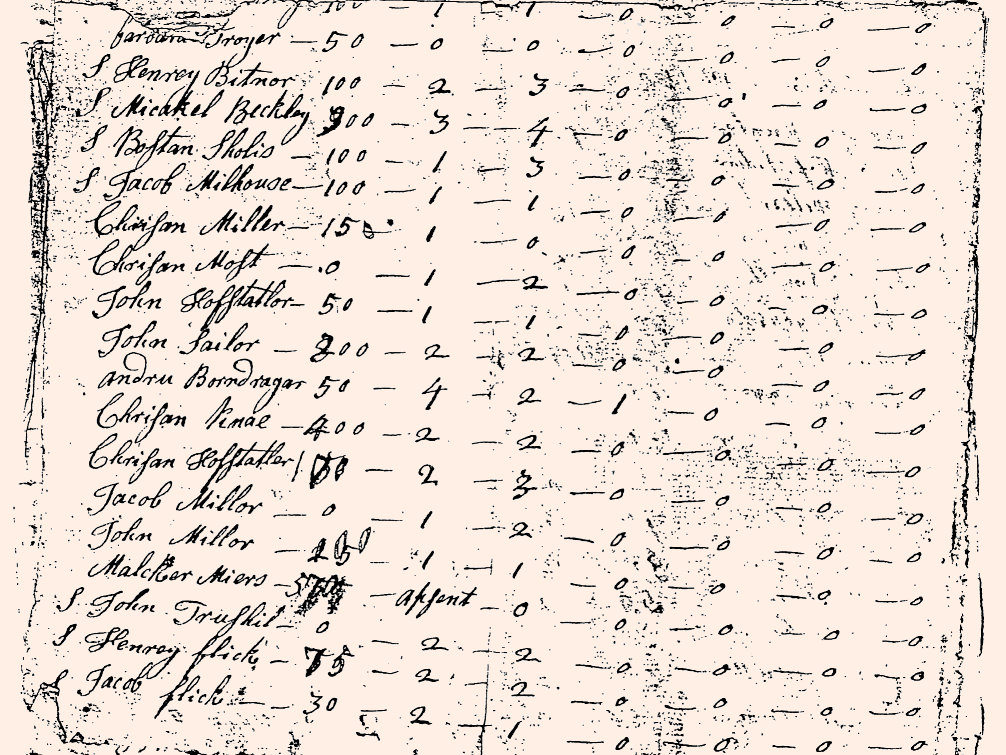 100 — 1 — 1 — 0 — 0 — 0 — 0
barbara Troyer — 50 — 0 — 0 — 0 — 0 — 0 — 0
S Henrey Bitnor 100 — 2 — 3 — 0 — 0 — 0 — 0
S Micakel Beckley 300 — 3 — 4 — 0 — 0 — 0 — 0
S Boſtan Sholis — 100 — 1 — 3 — 0 — 0 — 0 — 0
S Jacob Milhouse — 100 — 1 — 1 — 0 — 0 — 0 — 0
Chriſan Miller — 150 1 — 0 — 0 — 0 — 0 — 0
Chriſan Moſt — 0 — 1 — 2 — 0 — 0 — 0 — 0
John Hofſtatlor — 50 — 1 — 1 — 0 — 0 — 0 — 0
John Sailor — 200 — 2 — 2 — 0 — 0 — 0 — 0
andru Borndragar 50 — 4 — 2 — 1 — 0 — 0 — 0
Chriſan — 400 — 2 — 2 — 0 — 0 — 0 — 0
Chriſan Hofſtatler — 2 — 3 — 0 — 0 — 0 — 0
Jacob Millor — 0 — 1 — 2 — 0 — 0 — 0 — 0
John Millor — 1 — 1 — 0 — 0 — 0 — 0
Malcker Miers — — apſent — 0 — 0 — 0 — 0 — 0
S John Truſhil — 0 — 2 — 2 — 0 — 0 — 0 — 0
S Henrey flick — 75 — 2 — 2 — 0 — 0 — 0 — 0
S Jacob flick — 30 — 2 — 1 — 0 — 0 — 0 — 0